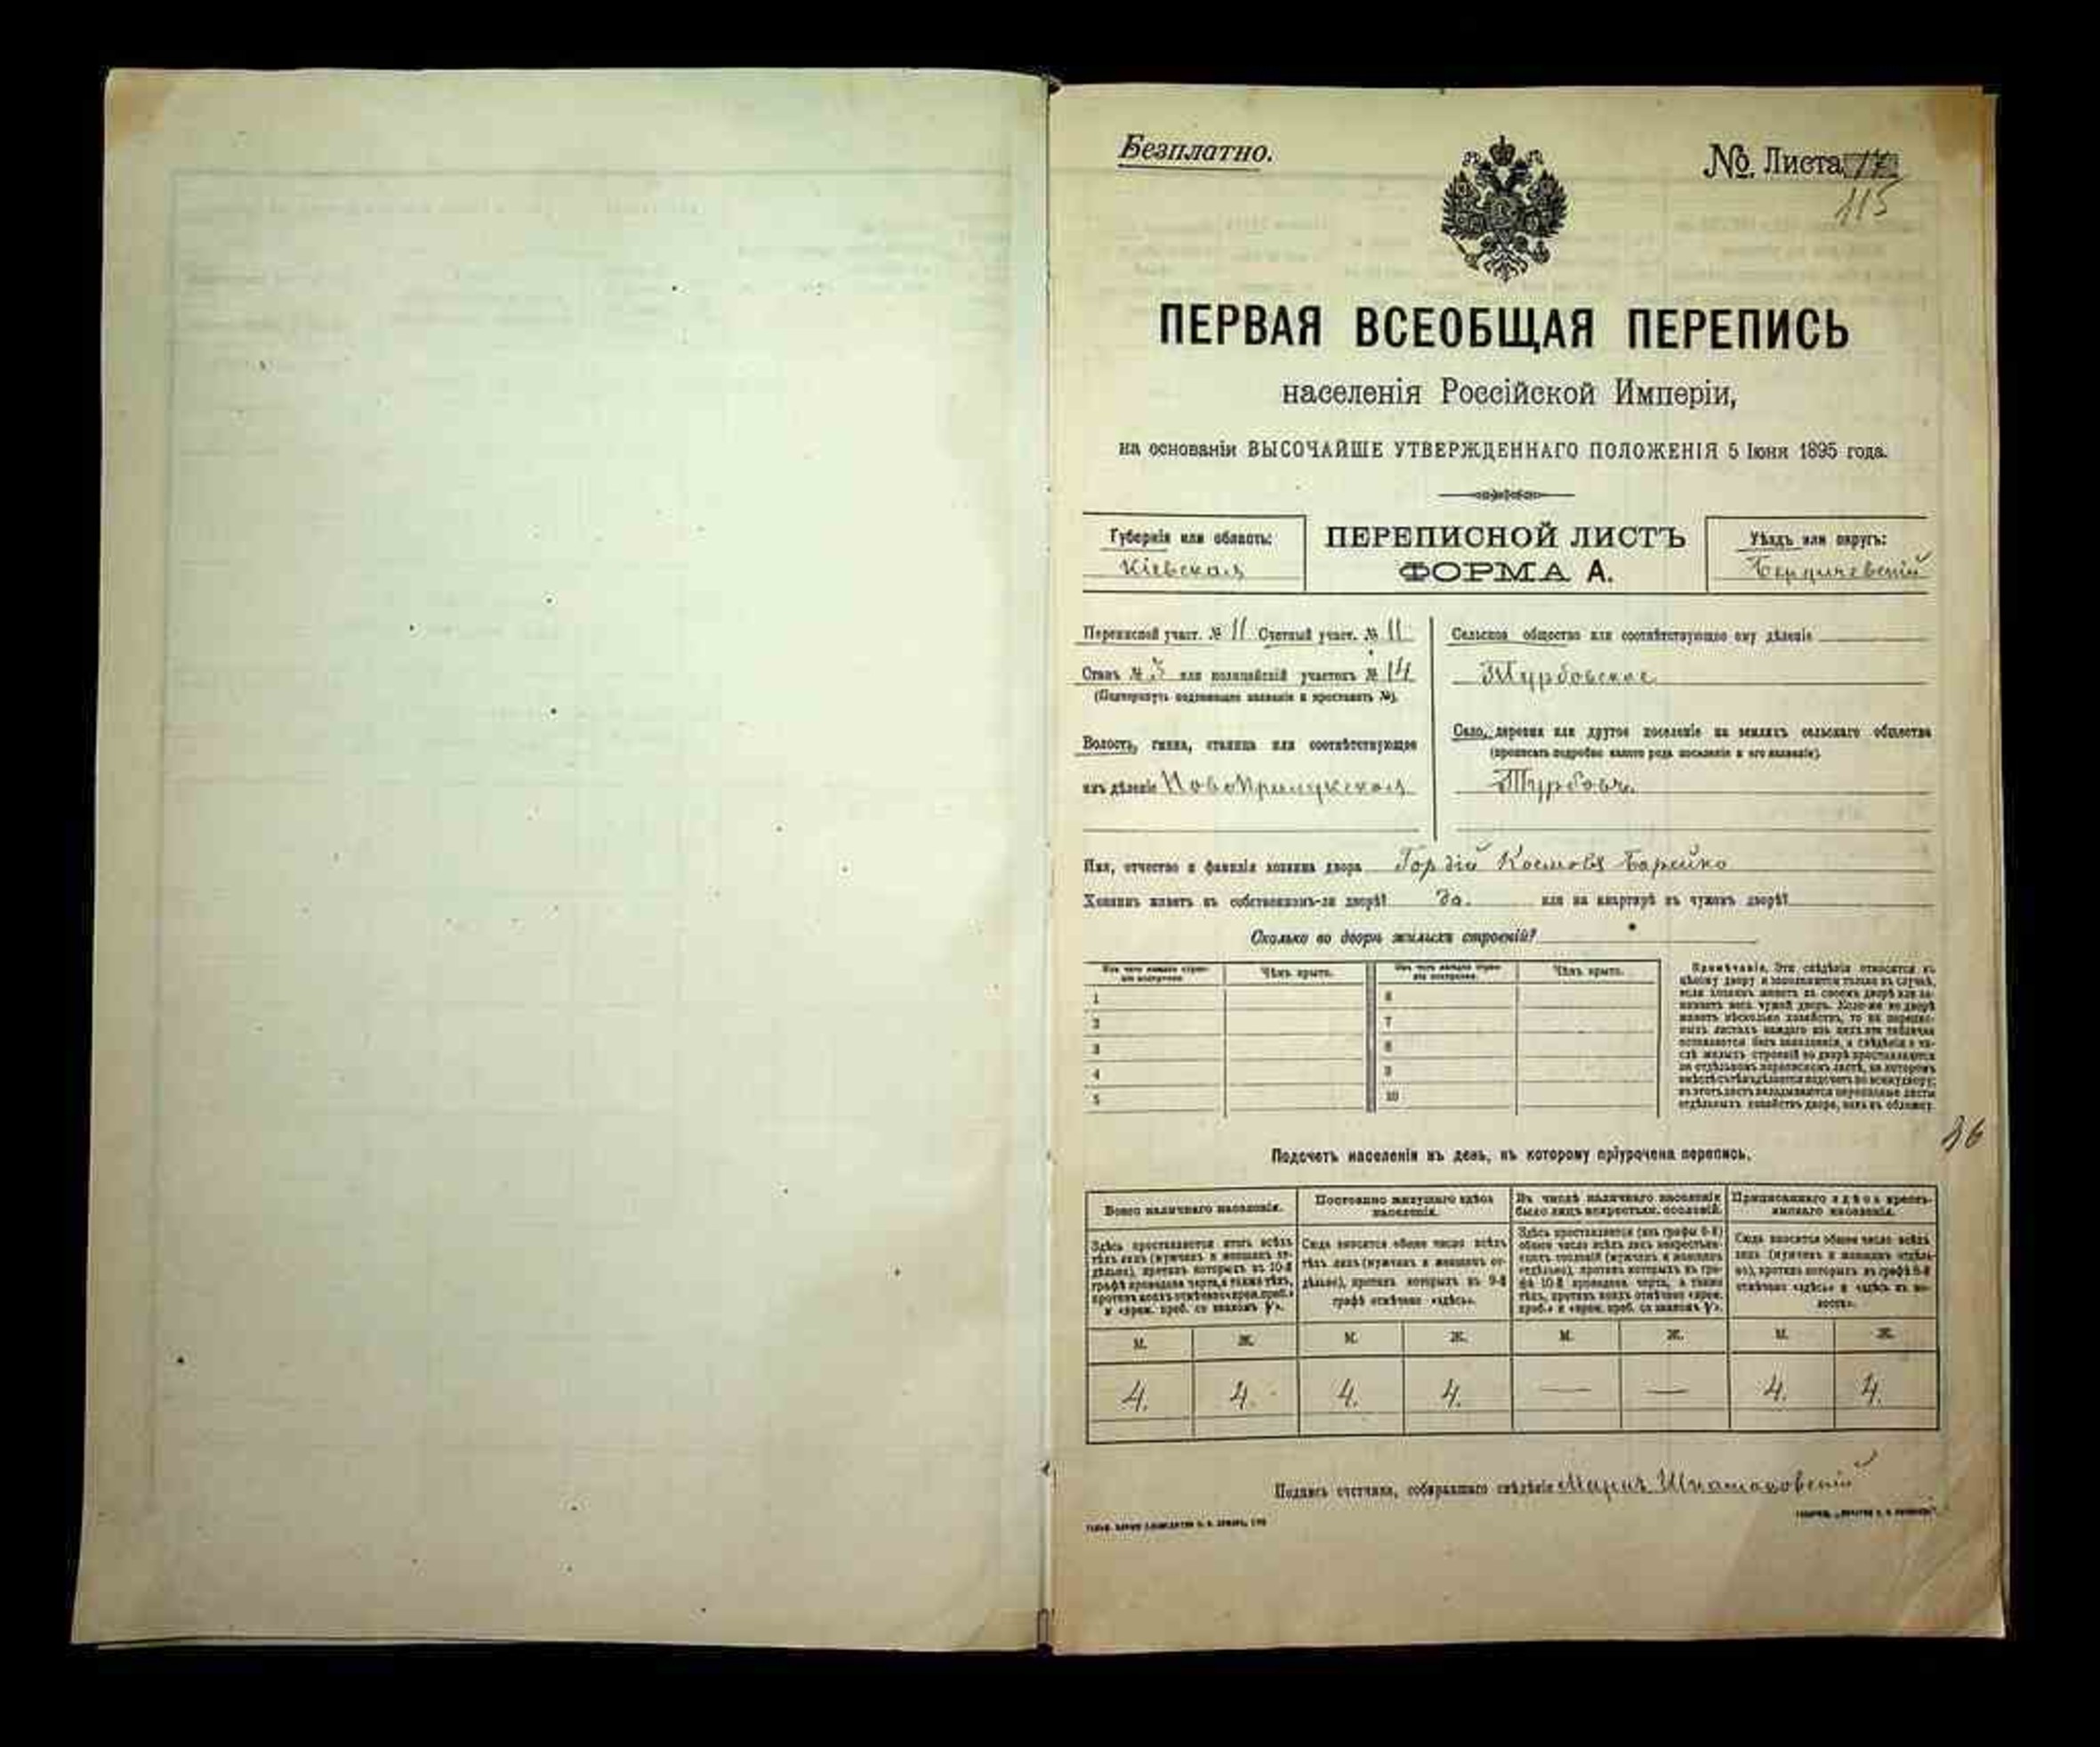 Безплатно.
№. Листа
115
ПЕРВАЯ ВСЕОБЩАЯ ПЕРЕПИСЬ
населенія Россійской Имперіи,
на основаніи ВЫСОЧАЙШЕ УТВЕРЖДЕННАГО ПОЛОЖЕНІЯ 5 Іюня 1895 года.
Губернія или область:
Кіевская
ПЕРЕПИСНОЙ ЛИСТЪ
ФОРМА А.
Уѣздъ или округъ:
Бердичевскій
Переписной участ. № 11 Счетный участ. № 11
Станъ № 3 или полицейскій участокъ № 14
(Подчеркнуть подлежащее названіе и проставить №).
Волость, гмина, станица или соотвѣтствующее
имъ дѣленіе Новоприлукская
Сельское общество или соотвѣтствующее ему дѣленіе
Турбовское
Село, деревня или другое поселеніе на земляхъ сельскаго общества
(прописать подробно какого рода поселеніе и его названіе).
Турбовъ.
Имя, отчество и фамилія хозяина двора Гордій Космовъ
Хозяинъ живетъ въ собственномъ-ли дворѣ? да. или на квартирѣ въ чужомъ дворѣ?
Сколько во дворѣ жилыхъ строеній?
Изъ чего каждое строеніе построено. Чѣмъ крыто. Изъ чего каждое строеніе построено. Чѣмъ крыто.
1 6
2 7
3 8
4 9
5 10
Примѣчаніе. Эти свѣдѣнія относятся къ
цѣлому двору и заполняются только въ случаѣ,
если хозяинъ живетъ въ своемъ дворѣ или занимаетъ
весь чужой дворъ. Коли-же во дворѣ
живетъ нѣсколько хозяйствъ, то на переписныхъ
листахъ каждаго изъ нихъ эти таблички
оставляются безъ заполненія, а свѣдѣнія о числѣ
жилыхъ строеній во дворѣ проставляются
на отдѣльномъ переписномъ листѣ, на которомъ
вмѣстѣ съ тѣмъ дѣлается подсчетъ по всему двору;
въ этотъ листъ вкладываются переписные листы
отдѣльныхъ хозяйствъ двора, какъ въ обложку.
16
Подсчетъ населенія въ день, къ которому пріурочена перепись.
Всего наличнаго населенія.
Постоянно живущаго здѣсь населенія.
Въ числѣ наличнаго населенія было лицъ некрестьян. сословій.
Приписаннаго здѣсь крестьянскаго населенія.
Здѣсь проставляется итогъ всѣхъ
тѣхъ лицъ (мужчинъ и женщинъ отдѣльно),
противъ которыхъ въ 10-й
графѣ проведена черта, а также тѣхъ,
противъ коихъ отмѣчено «врем. преб.»
и «врем. преб. со знакомъ V».
Сюда вносится общее число всѣхъ
тѣхъ лицъ (мужчинъ и женщинъ отдѣльно),
противъ которыхъ въ 9-й
графѣ отмѣчено «здѣсь».
Здѣсь проставляется (изъ графы 6-й)
общее число всѣхъ лицъ некрестьянскихъ
сословій (мужчинъ и женщинъ
отдѣльно), противъ которыхъ въ графѣ
10-й проведена черта, а также
тѣхъ, противъ коихъ отмѣчено «врем.
преб.» и «врем. преб. со знакомъ V».
Сюда вносится общее число всѣхъ
лицъ (мужчинъ и женщинъ отдѣльно),
противъ которыхъ въ графѣ 8-й
отмѣчено «здѣсь» и «здѣсь въ волости».
М. Ж. М. Ж. М. Ж. М. Ж.
4. 4. 4. 4. — — 4. 4.
Подпись счетчика, собиравшаго свѣдѣнія